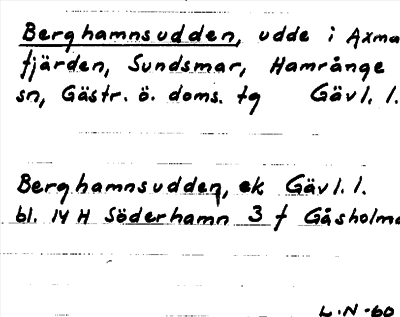 Berghamnsudden, udde i Axma
fjärden, Sundsmar, Hamrånge
sn, Gästr. ö. doms. tg Gävl. l.
Berghamnsudden, ek Gävl. l.
bl. 14 H Söderhamn 3 f Gåsholma
L.N-60